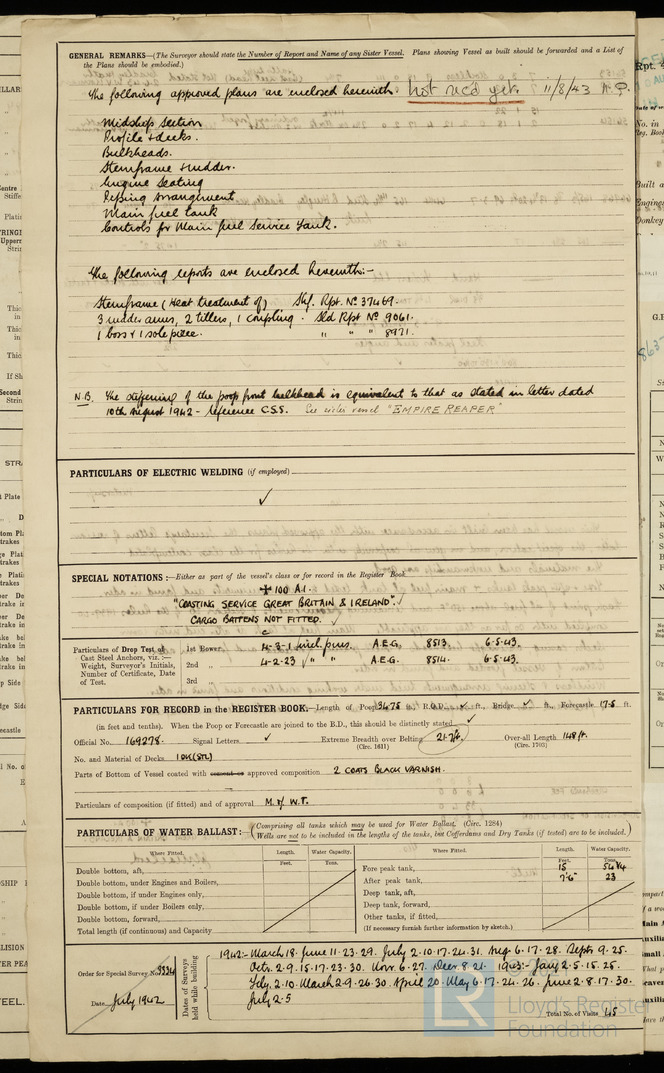 GENERAL REMARKS—(The Surveyor should state the Number of Report and Name of any Sister Vessel. Plans showing Vessel as built should be forwarded and a List of
the Plans should be embodied.)
The following approved plans are enclosed herewith not rec'd yet. 11/8/43
Midship Section
Profile & decks.
Bulkheads.
Sternframe & rudder.
Engine Seating
Piping Arrangement
Main fuel tank
Controls for Main fuel Service Tank.
The following reports are enclosed herewith:-
Sternframe (Heat treatment of) Shf. Rpt. No 37469.
3 rudder arms, 2 tillers, 1 coupling. Sld Rpt No 9061.
1 boss & 1 sole piece. " " " 8971.
N.B. The stiffening of the poop front bulkhead is equivalent to that as stated in letter dated
10th August 1942 - reference C.S.S. See sister vessel "EMPIRE REAPER"
PARTICULARS OF ELECTRIC WELDING (if employed)
✓
SPECIAL NOTATIONS:—Either as part of the vessel's class or for record in the Register Book
✠ 100 A.1.
"COASTING SERVICE GREAT BRITAIN & IRELAND" ✓
CARGO BATTENS NOT FITTED. ✓
Particulars of Drop Test of Cast Steel Anchors, viz.:— Weight, Surveyor's Initials, Number of Certificate, Date of Test.
1st Bower 4-3-1 incl. pins. A.E.G. 8513. 6-5-43.
2nd " 4-2-23 ✓ " " A.E.G. 8514. 6-5-43.
3rd "
PARTICULARS FOR RECORD in the REGISTER BOOK:—Length of Poop 34.75 ft., R.Q.D. ✓ ft., Bridge ✓ ft., Forecastle 17.5 ft.
(in feet and tenths). When the Poop or Forecastle are joined to the B.D., this should be distinctly stated ✓
Official No. 169278. Signal Letters ✓ Extreme Breadth over Belting 21.7ft. (Circ. 1611) Over-all Length 148 ft. (Circ. 1703)
No. and Material of Decks 1 DK (STL)
Parts of Bottom of Vessel coated with cement or approved composition 2 COATS BLACK VARNISH.
Particulars of composition (if fitted) and of approval M. of W.T.
PARTICULARS OF WATER BALLAST:—(Comprising all tanks which may be used for Water Ballast. (Circ. 1284)
Wells are not to be included in the lengths of the tanks, but Cofferdams and Dry Tanks (if tested) are to be included.)
Where Fitted. Length. Water Capacity. Where Fitted. Length. Water Capacity.
Feet. Tons. Feet. Tons.
Double bottom, aft, Fore peak tank, 15
Double bottom, under Engines and Boilers, After peak tank, 7'6" 23
Double bottom, if under Engines only, Deep tank, aft,
Double bottom, if under Boilers only, Deep tank, forward,
Double bottom, forward, Other tanks, if fitted,
Total length (if continuous) and Capacity (If necessary furnish further information by sketch.)
Order for Special Survey No. 3334
Date July 1942
Dates of Surveys held while building
1942:- March 18. June 11-23-29. July 2-10-17-24-31. Aug 6-17-28. Septr 9-25.
Octr. 2-9-15-17-23-30. Nov. 6-27. Decr. 8-21. 1943:- Jany 2-5-15-25.
Feby. 2-10. March 2-9-26-30. April 20. May 6-17-24-26. June 2-8-17-30.
July 2-5
Total No. of Visits 45
LR Lloyd's Register
Foundation